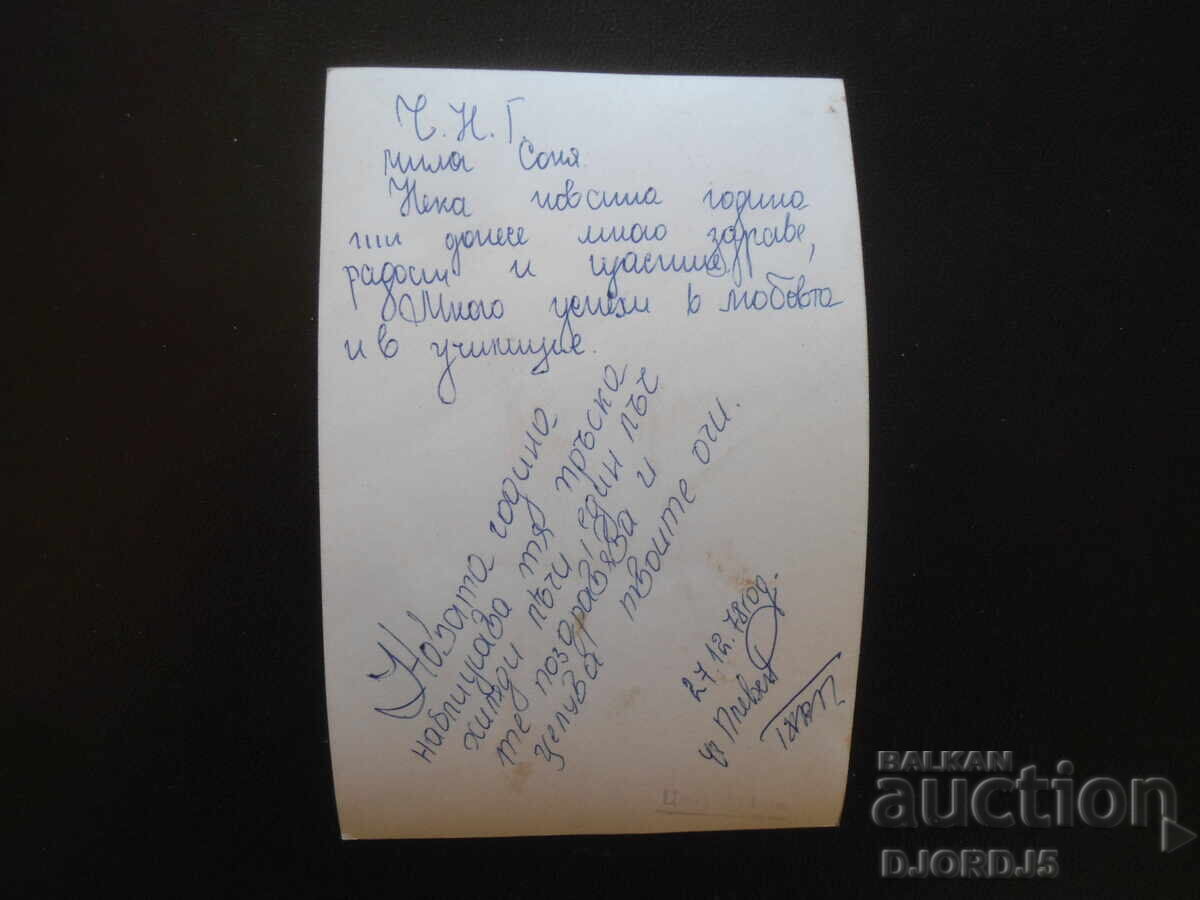 Ч.Н.Г.
мила Соня.
Нека новата година
ти донесе много здраве,
радост и щастие,
Много успехи в любовта
и в училище.
Новата година
наближава тя пръска
хиляди лъчи един лъч
те поздравява и
целува твоите очи.
27.12.78 год.
гр. Плевен
BALKAN
auction
DJORDJ5